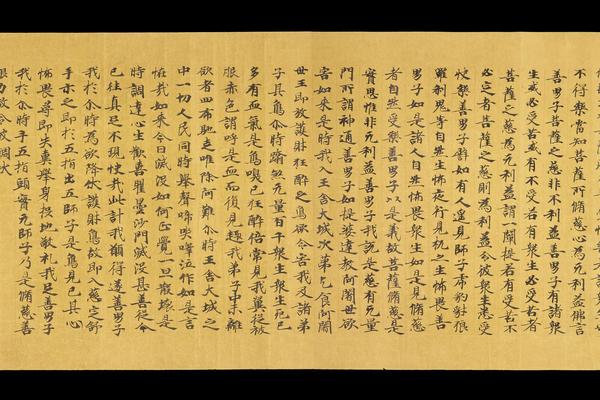 不得樂當知菩薩所脩慈心為无利益佛言
善男子菩薩之慈非不利益善男子有諸眾
生或必受苦或有不受若有眾生必受苦者
菩薩之慈為无利益謂一闡提若有受苦不
必定者菩薩之慈則為利益令彼眾生悉受
快樂善男子譬如有人遥見師子虎豹豺狼
羅剎鬼等自然生怖夜行見杌亦生怖畏善
男子如是諸人自然怖畏眾生如是見脩慈
者自然受樂善男子以是義故菩薩脩慈是
實思惟非无利益善男子我說是慈有无量
門所謂神通善男子如提婆達教阿闍世欲
害如來是時我入王舍大城次第乞食阿闍
世王即放護財狂醉之象欲令害我及諸弟
子其象尒時蹹煞无量百千眾生眾生死已
多有血氣是象嗅已狂醉倍常見我翼從被
服赤色謂呼是血而復見趣我弟子中未離
欲者四怖馳走唯除阿難尒時王舍大城之
中一切人民同時舉聲啼哭號泣作如是言
怪哉如來今日滅沒如何正覺一旦散壞是
時調達心生歡喜瞿曇沙門滅沒甚善從今
已往真是不現快哉此計我願得遂善男子
我於尒時為欲降伏護財象故即入慈定舒
手示之即於五指出五師子是象見已其心
怖畏尋即失糞舉身投地敬礼我足善男子
我於尒時手五指頭實无師子乃是脩慈善
根力故令彼調伏